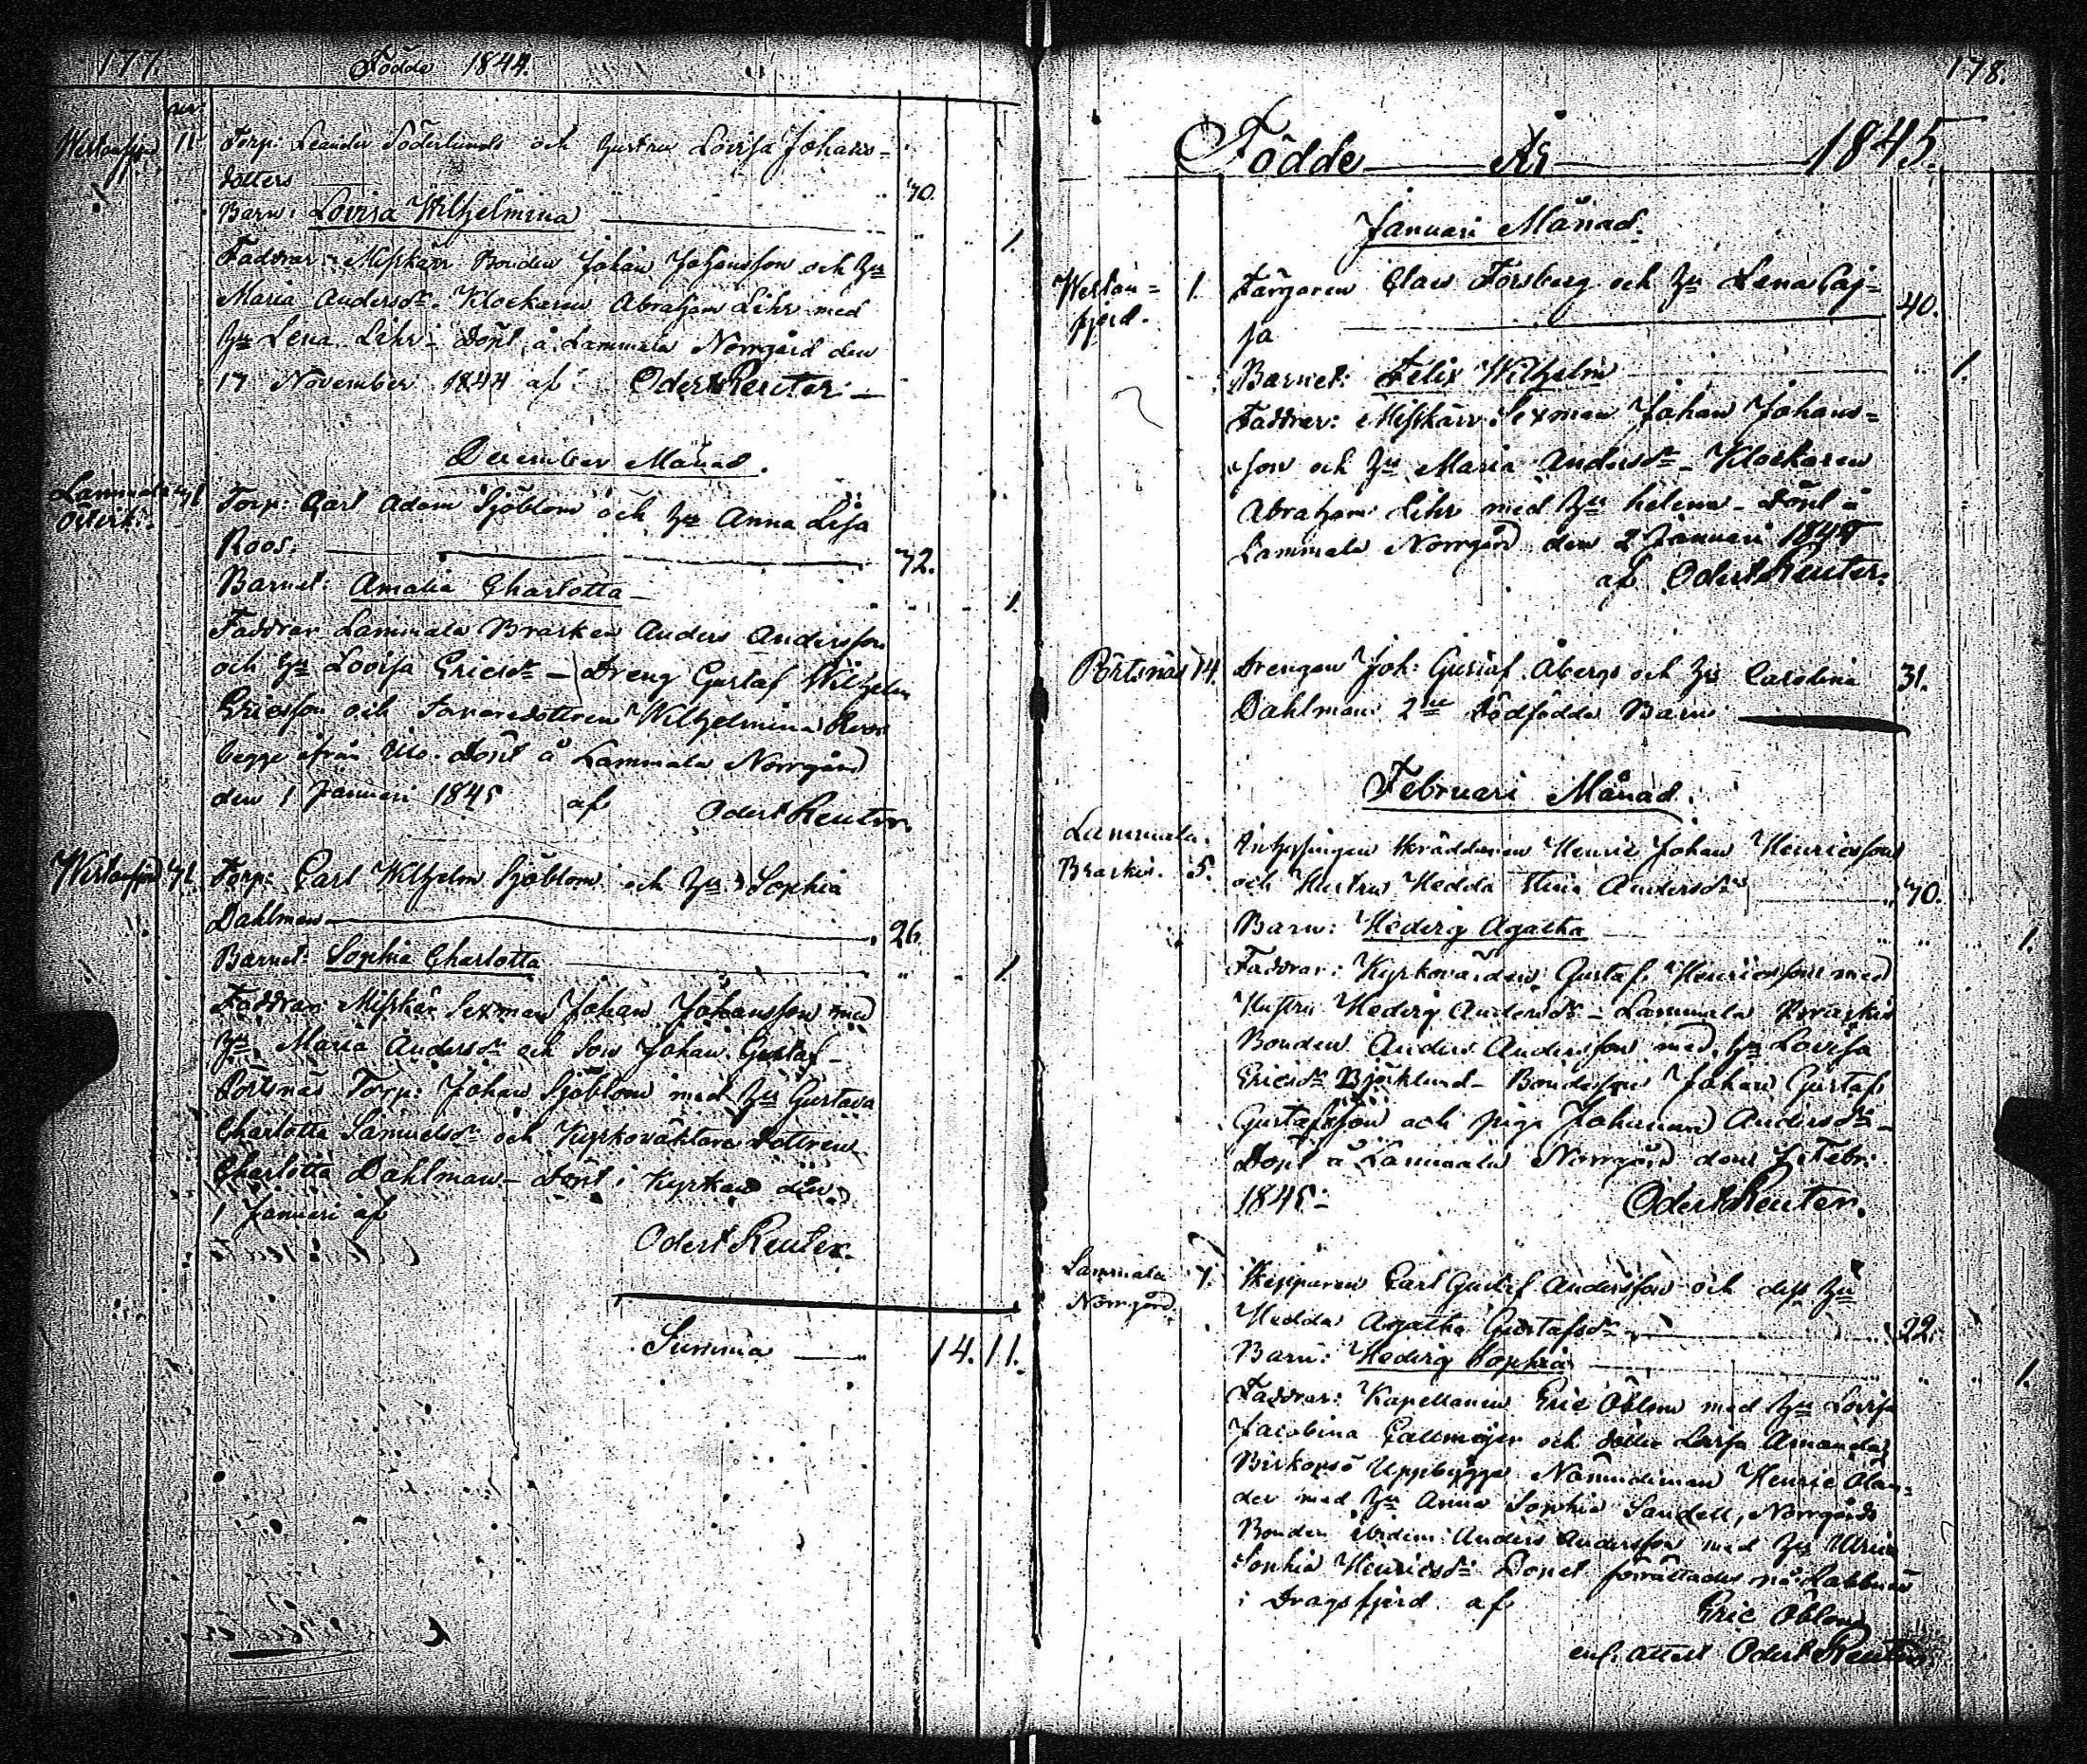 177.
Födde 1844.
Westanfjerd 11. Torp: Leander Söderlunds och hustru Lovisa Johans=
dotters 40.
Barn: Lovisa Wilhelmina 1.
Faddrar: Misskärr Bonden Johan Johansson och hu
Maria Andersdr. Klockaren Abraham Lihr med
hu Lena Lihr - Döpt å Lammala Norrgård den
17 November 1844 af Odert Reuter.
December Månad.
Lammala
Torp: Carl Adam Sjöblom och hu Anna Lisa
Roos. 42.
Barnet: Amalia Charlotta 1.
Faddrar Lammala Brasken Anders Andersson
och hu Lovisa Ericsdr - Dreng Gustaf Wilhelm
Ericsson och dottren Wilhelmina Roos
begge ifrån Döpt å Lammala Norrgård
den 1 Januari 1845 af Odert Reuter.
Westanfjerd Torp: Carl Wilhelm Sjöblom och hu Sophia
Dahlman 26.
Barnet: Sophia Charlotta 1.
Faddrar: Misskär Sexman Johan Johansson med
hu Maria Andersdr och Son Johan Gustaf -
Pörtsnäs Torp: Johan Sjöblom med hu Gustava
Charlotta Samuelsdr och Kyrkoväktare dottren
Charlotta Dahlman - Döpt i Kyrkan den
1 Januari af
Odert Reuter.
Summa 14. 11.
178.
Födde År 1845.
Januari Månad.
Westan=
fjerd. 1. Färgaren Claes Forsberg och hu Lena Caj=
sa 40.
Barnet: Felix Wilhelm 1.
Faddrar: Misskärr Sexman Johan Johans=
son och hu Maria Andersdr - Klockaren
Abraham Lihr med hu Helena - Döpt å
Lammala Norrgård den 2 Januari 1845
af Odert Reuter.
Pörtsnäs 14. Drengen Joh: Gustaf Åbergs och hu Carolina 31.
Dahlmans 2ne Dödfödda Barn
Februari Månad.
Lammala
Braskis. 5. Inhysingen Skräddaren Henric Johan Henricsson
och Hustru Hedda Stina Andersdr 40.
Barn: Hedvig Agatha 1.
Faddrar: Kyrkovärden Gustaf Henricsson med
Hustru Hedvig Andersdr - Lammala Braskis
Bonden Anders Andersson med hu Lovisa
Ericsdr Björklund - Bondesson Johan Gustaf
Gustafsson och piga Johanna Andersdr -
Döpt å Lammala Norrgård den Febr:
1845. Odert Reuter.
Lammala
Norrgård. 7. Skepparen Carl Gustaf Andersson och dess hu
Hedda Agatha Gustafsdr 22.
Barn: Hedvig Sophia 1.
Faddrar: Kapellanen Eric Öblom med hu Lovisa
Jacobina Callmeijer och dotter Lovisa Amanda,
Birkersö Uppbygges Nämndeman Henric Ölan=
der med hu Anna Sophia Sandell, Norrgårds
Bonden ibidem Anders Andersson med hu Ulrica
Sophia Henricsdr Dopet förrättades på
i Dragsfjerd af Eric Öblom
enl. attest Odert Reuter.